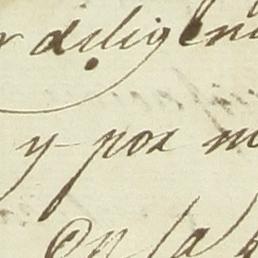 r diligen
y por m
En la